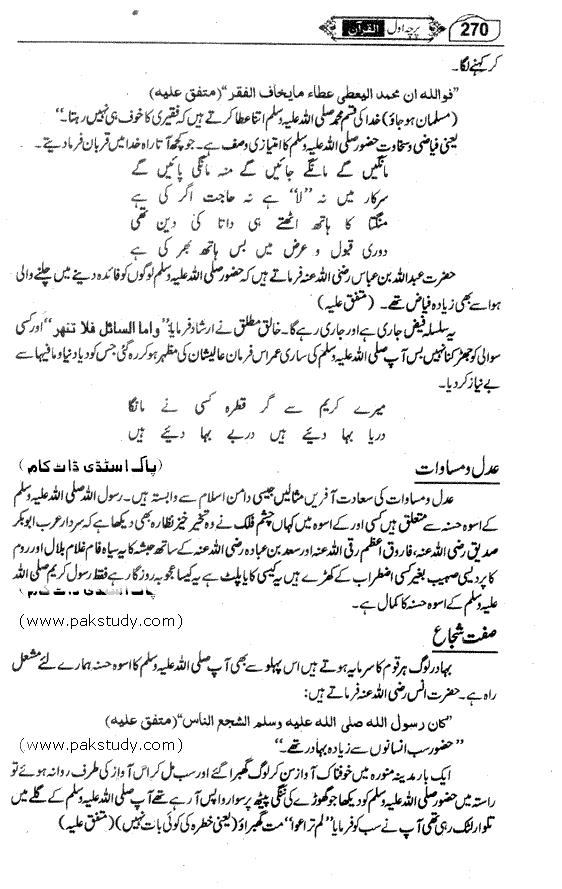 270 پرچہ اول القرآن
کر کہنے لگا۔
"فو الله ان محمد الیعطی عطاء مایخاف الفقر" (متفق علیه)
(مسلمان ہو جاؤ) خدا کی قسم محمد صلی اللہ علیہ وسلم اتنا عطا کرتے ہیں کہ فقیری کا خوف ہی نہیں رہتا۔"
یعنی فیاضی و سخاوت حضور صلی اللہ علیہ وسلم کا امتیازی وصف ہے۔ جو کچھ آتا راہ خدا میں قربان فرما دیتے۔
مانگیں گے مانگے جائیں گے منہ مانگی پائیں گے
سرکار میں نہ "لا" ہے نہ حاجت اگر کی ہے
منگتا کا ہاتھ اٹھتے ہی داتا کی دین تھی
دوری قبول و عرض میں بس ہاتھ بھر کی ہے
حضرت عبداللہ بن عباس رضی اللہ عنہ فرماتے ہیں کہ حضور صلی اللہ علیہ وسلم لوگوں کو فائدہ دینے میں چلنے والی
ہوا سے بھی زیادہ فیاض تھے۔ (متفق علیہ)
یہ سلسلہ فیض جاری ہے اور جاری رہے گا۔ خالق مطلق نے ارشاد فرمایا "واما السائل فلا تنهر" اور کسی
سوالی کو جھڑکنا نہیں بس آپ صلی اللہ علیہ وسلم کی ساری عمر اس فرمان عالیشان کی مظہر ہو کر رہ گئی جس کو دیا دنیا و مافیہا سے
بے نیاز کر دیا۔
میرے کریم سے گر قطرہ کسی نے مانگا
دریا بہا دیئے ہیں دربے بہا دیئے ہیں
عدل و مساوات (پاک اسٹڈی ڈاٹ کام)
عدل و مساوات کی سعادت آفریں مثالیں جیسی دامن اسلام سے وابستہ ہیں۔ رسول اللہ صلی اللہ علیہ وسلم
کے اسوہ حسنہ سے متعلق ہیں کسی اور کے اسوہ میں کہاں چشم فلک نے وہ تحیر خیز نظارہ بھی دیکھا ہے کہ سردار عرب ابوبکر
صدیق رضی اللہ عنہ، فاروق اعظم رضی اللہ عنہ اور سعد بن عبادہ رضی اللہ عنہ کے ساتھ حبشہ کا سیاہ فام غلام بلال اور روم
کا پردیسی صہیب بغیر کسی اضطراب کے کھڑے ہیں یہ کیسی کایا پلٹ ہے یہ کیسا عجوبہ روزگار ہے فقط رسول کریم صلی اللہ
علیہ وسلم کے اسوہ حسنہ کا کمال ہے۔ پاک اسٹڈی ڈاٹ کام
(www.pakstudy.com)
صفت شجاع
بہادر لوگ ہر قوم کا سرمایہ ہوتے ہیں اس پہلو سے بھی آپ صلی اللہ علیہ وسلم کا اسوہ حسنہ ہمارے لئے مشعل
راہ ہے۔ حضرت انس رضی اللہ عنہ فرماتے ہیں:
"کان رسول الله صلی الله علیه وسلم الشجع الناس" (متفق علیه)
"حضور سب انسانوں سے زیادہ بہادر تھے۔" (www.pakstudy.com)
ایک بار مدینہ منورہ میں خوفناک آواز سن کر لوگ گھبرا گئے اور سب مل کر اس آواز کی طرف روانہ ہوئے تو
راستہ میں حضور صلی اللہ علیہ وسلم کو دیکھا جو گھوڑے کی ننگی پیٹھ پر سوار واپس آ رہے تھے آپ صلی اللہ علیہ وسلم کے گلے میں
تلوار لٹک رہی تھی آپ نے سب کو فرمایا "لم تراعوا" مت گھبراؤ (یعنی خطرہ کی کوئی بات نہیں) (متفق علیہ)